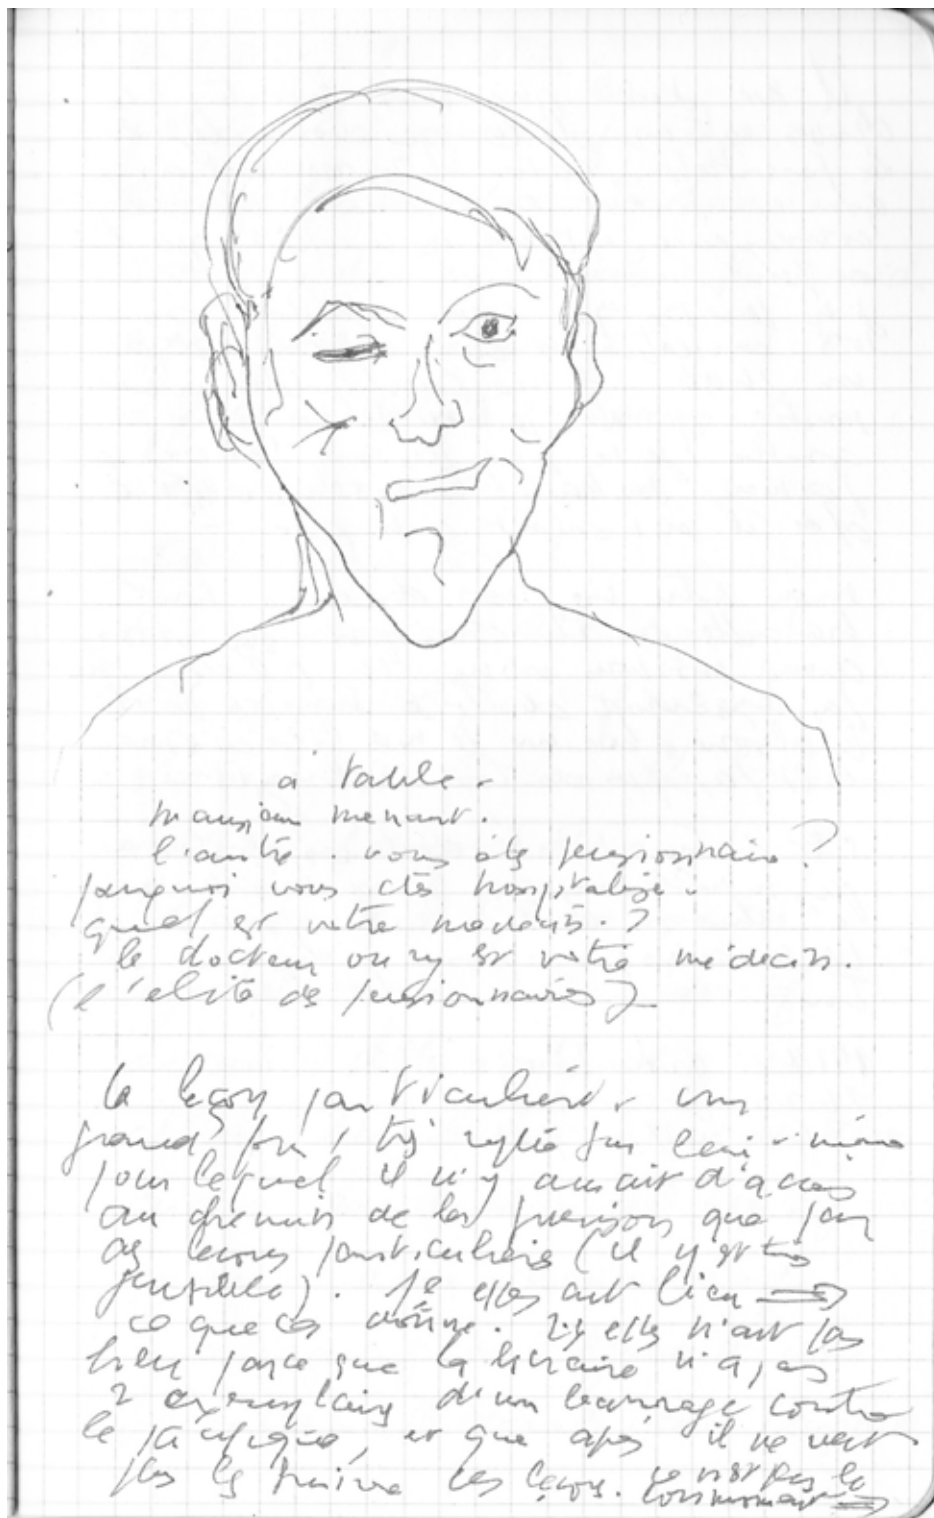 à table -
monsieur menant.
l'autre. vous êtes pensionnaire ?
pourquoi vous êtes hospitalisé.
quel est votre médecin. ?
le docteur oury est votre médecin.
(l'élite des pensionnaires)
la leçon particulière. un
grand fou, très replié sur lui-même
pour lequel il n'y aurait d'accès
au chemin de la guérison que par
des leçons particulières (il y est très
sensible). 1° elles ont lieu →
ce que ça donne. 2° elles n'ont pas
lieu parce que la libraire n'a pas
2 exemplaires d'un barrage contre
le pacifique, et que après il ne veut
plus les suivre les leçons. ce n'est pas le